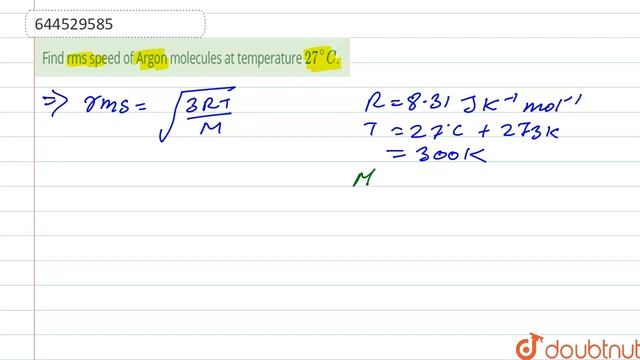 644529585
Find rms speed of Argon molecules at temperature 27°C.
⇒ rms = √(3RT/M)
R = 8.31 JK⁻¹ mol⁻¹
T = 27°C + 273K
= 300K
M
doubtnut